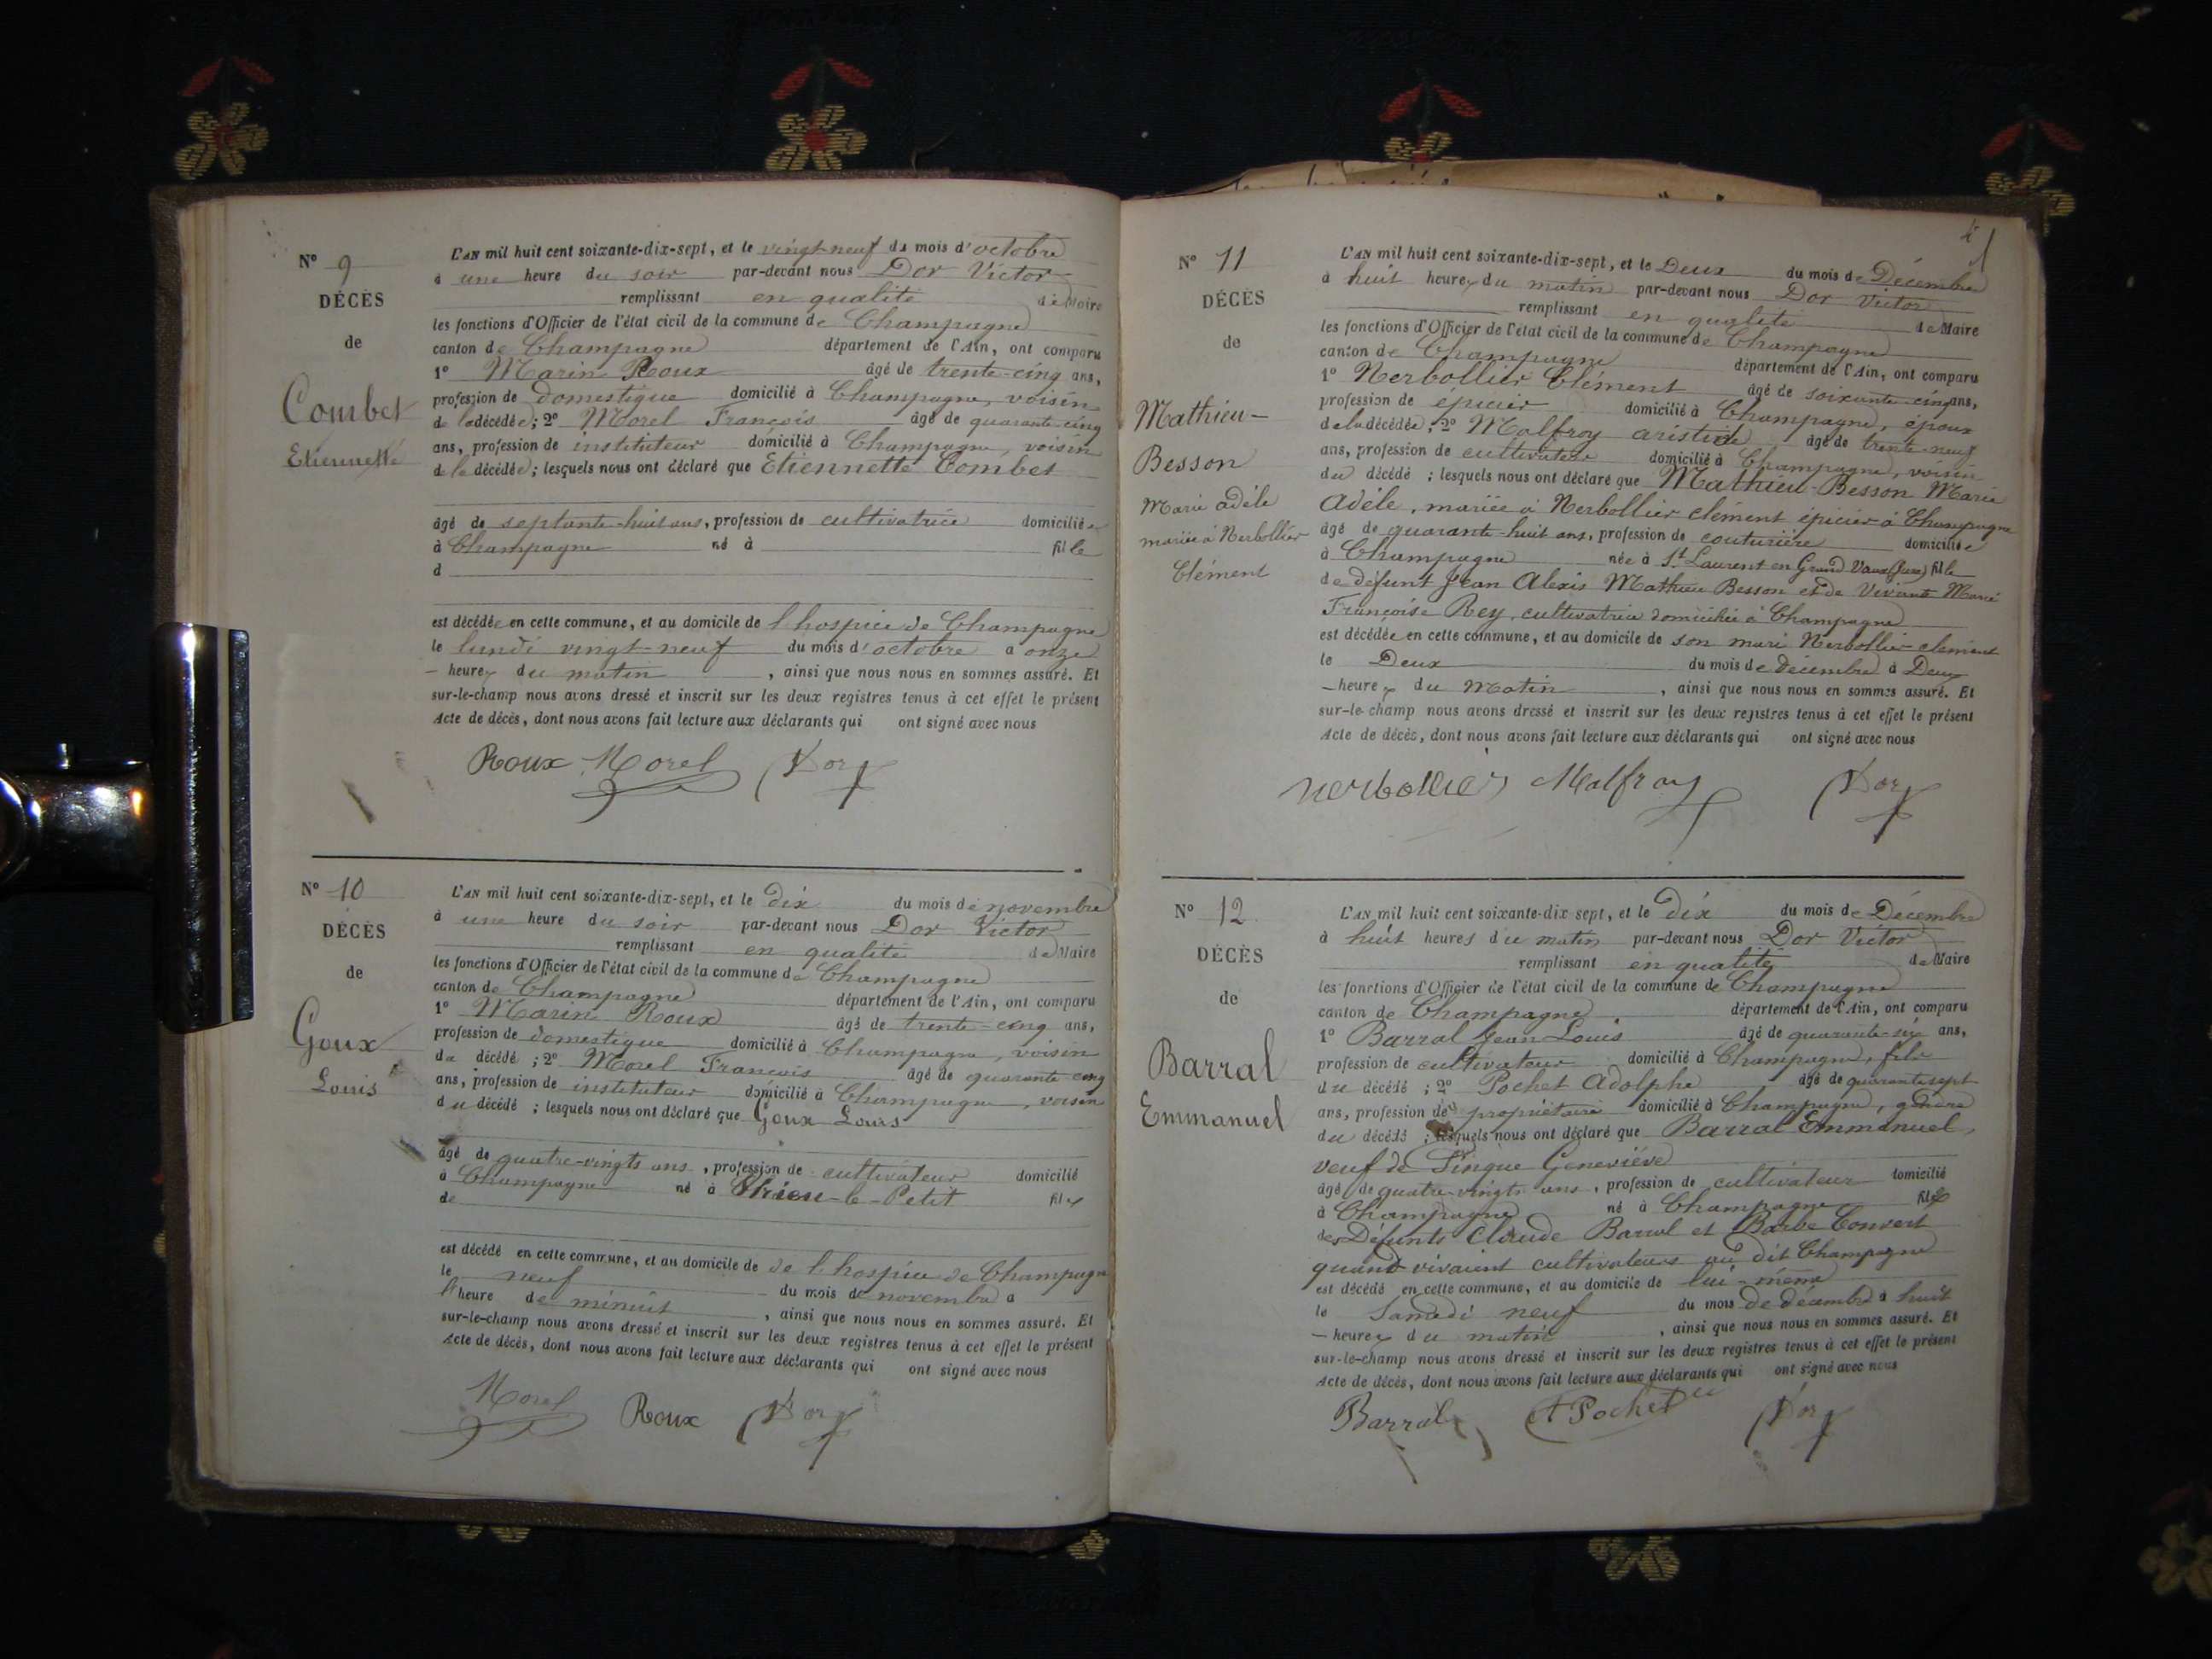 N° 9
DÉCÈS
de
Combet
Etiennette
L'AN mil huit cent soixante-dix-sept, et le vingt-neuf du mois d'octobre
à une heure du soir par-devant nous Dor Victor
remplissant en qualité de Maire
les fonctions d'Officier de l'état civil de la commune de Champagne
canton de Champagne département de l'Ain, ont comparu
1° Marin Roux âgé de trente-cinq ans,
profession de domestique domicilié à Champagne, voisin
de la décédée; 2° Morel François âgé de quarante-cinq
ans, profession de instituteur domicilié à Champagne, voisin
de la décédée; lesquels nous ont déclaré que Etiennette Combet
âgé de septante-huit ans, profession de cultivatrice domiciliée
à Champagne né à fille
d
est décédée en cette commune, et au domicile de l'hospice de Champagne
le lundi vingt-neuf du mois d'octobre à onze
heures du matin, ainsi que nous nous en sommes assuré. Et
sur-le-champ nous avons dressé et inscrit sur les deux registres tenus à cet effet le présent
Acte de décès, dont nous avons fait lecture aux déclarants qui ont signé avec nous
Roux Morel Dor
N° 10
DÉCÈS
de
Goux
Louis
L'AN mil huit cent soixante-dix-sept, et le dix du mois de novembre
à une heure du soir par-devant nous Dor Victor
remplissant en qualité de Maire
les fonctions d'Officier de l'état civil de la commune de Champagne
canton de Champagne département de l'Ain, ont comparu
1° Marin Roux âgé de trente-cinq ans,
profession de domestique domicilié à Champagne, voisin
du décédé; 2° Morel François âgé de quarante-cinq
ans, profession de instituteur domicilié à Champagne, voisin
du décédé; lesquels nous ont déclaré que Goux Louis
âgé de quatre-vingts ans, profession de cultivateur domicilié
à Champagne né à -le-Petit fils
de
est décédé en cette commune, et au domicile de de l'hospice de Champagne
le neuf du mois de novembre à
l'heure de minuit, ainsi que nous nous en sommes assuré. Et
sur-le-champ nous avons dressé et inscrit sur les deux registres tenus à cet effet le présent
Acte de décès, dont nous avons fait lecture aux déclarants qui ont signé avec nous
Morel Roux Dor
N° 11
DÉCÈS
de
Mathieu-
Besson
Marie adèle
mariée à Nerbollier
Clément
L'AN mil huit cent soixante-dix-sept, et le Deux du mois de Décembre
à huit heures du matin par-devant nous Dor Victor
remplissant en qualité de Maire
les fonctions d'Officier de l'état civil de la commune de Champagne
canton de Champagne département de l'Ain, ont comparu
1° Nerbollier Clément âgé de soixante-cinq ans,
profession de épicier domicilié à Champagne, époux
de la décédée; 2° Malfroy aristide âgé de trente-neuf
ans, profession de cultivateur domicilié à Champagne, voisin
du décédé; lesquels nous ont déclaré que Mathieu-Besson Marie
Adèle, mariée à Nerbollier clément épicier à Champagne
âgé de quarante-huit ans, profession de couturière domiciliée
à Champagne née à St Laurent en Grand Vaux (Jura) fille
de défunt Jean Alexis Mathieu Besson et de Vivante Marie
Françoise Rey, cultivatrice domiciliée à Champagne
est décédée en cette commune, et au domicile de son mari Nerbollier clément
le Deux du mois de décembre à Deux
heures du Matin, ainsi que nous nous en sommes assuré. Et
sur-le-champ nous avons dressé et inscrit sur les deux registres tenus à cet effet le présent
Acte de décès, dont nous avons fait lecture aux déclarants qui ont signé avec nous
nerbollier Malfroy Dor
N° 12
DÉCÈS
de
Barral
Emmanuel
L'AN mil huit cent soixante-dix sept, et le dix du mois de Décembre
à huit heures du matin par-devant nous Dor Victor
remplissant en qualité de Maire
les fonctions d'Officier de l'état civil de la commune de Champagne
canton de Champagne département de l'Ain, ont comparu
1° Barral Jean Louis âgé de quarante-six ans,
profession de cultivateur domicilié à Champagne, fils
du décédé; 2° Pochet Adolphe âgé de quarante sept
ans, profession de propriétaire domicilié à Champagne, gendre
du décédé; lesquels nous ont déclaré que Barral Emmanuel,
veuf de Pingue Geneviève
âgé de quatre-vingts ans, profession de cultivateur domicilié
à Champagne né à Champagne fils
des Défunts Claude Barral et Barbe Convert
quand vivaient cultivateurs au dit Champagne
est décédé en cette commune, et au domicile de lui-même
le Samedi neuf du mois de décembre à huit
heures du matin, ainsi que nous nous en sommes assuré. Et
sur-le-champ nous avons dressé et inscrit sur les deux registres tenus à cet effet le présent
Acte de décès, dont nous avons fait lecture aux déclarants qui ont signé avec nous
Barral A Pochet Dor